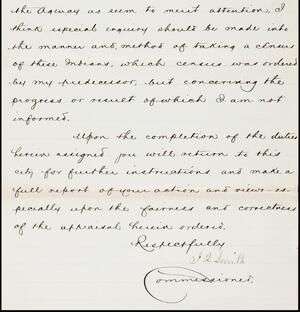 the Agency as seem to merit attention, I
think especial enquiry should be made into
the manner and method of taking a census
of these Indians, which census was ordered
by my predecessor, but concerning the
progress or result of which I am not
informed.
Upon the completion of the duties
herein assigned you will return to this
city for further instructions and make a
full report of your action and views es-
pecially upon the fairness and correctness
of the appraisal herein ordered.
Respectfully
J. Q. Smith
Commissioner.